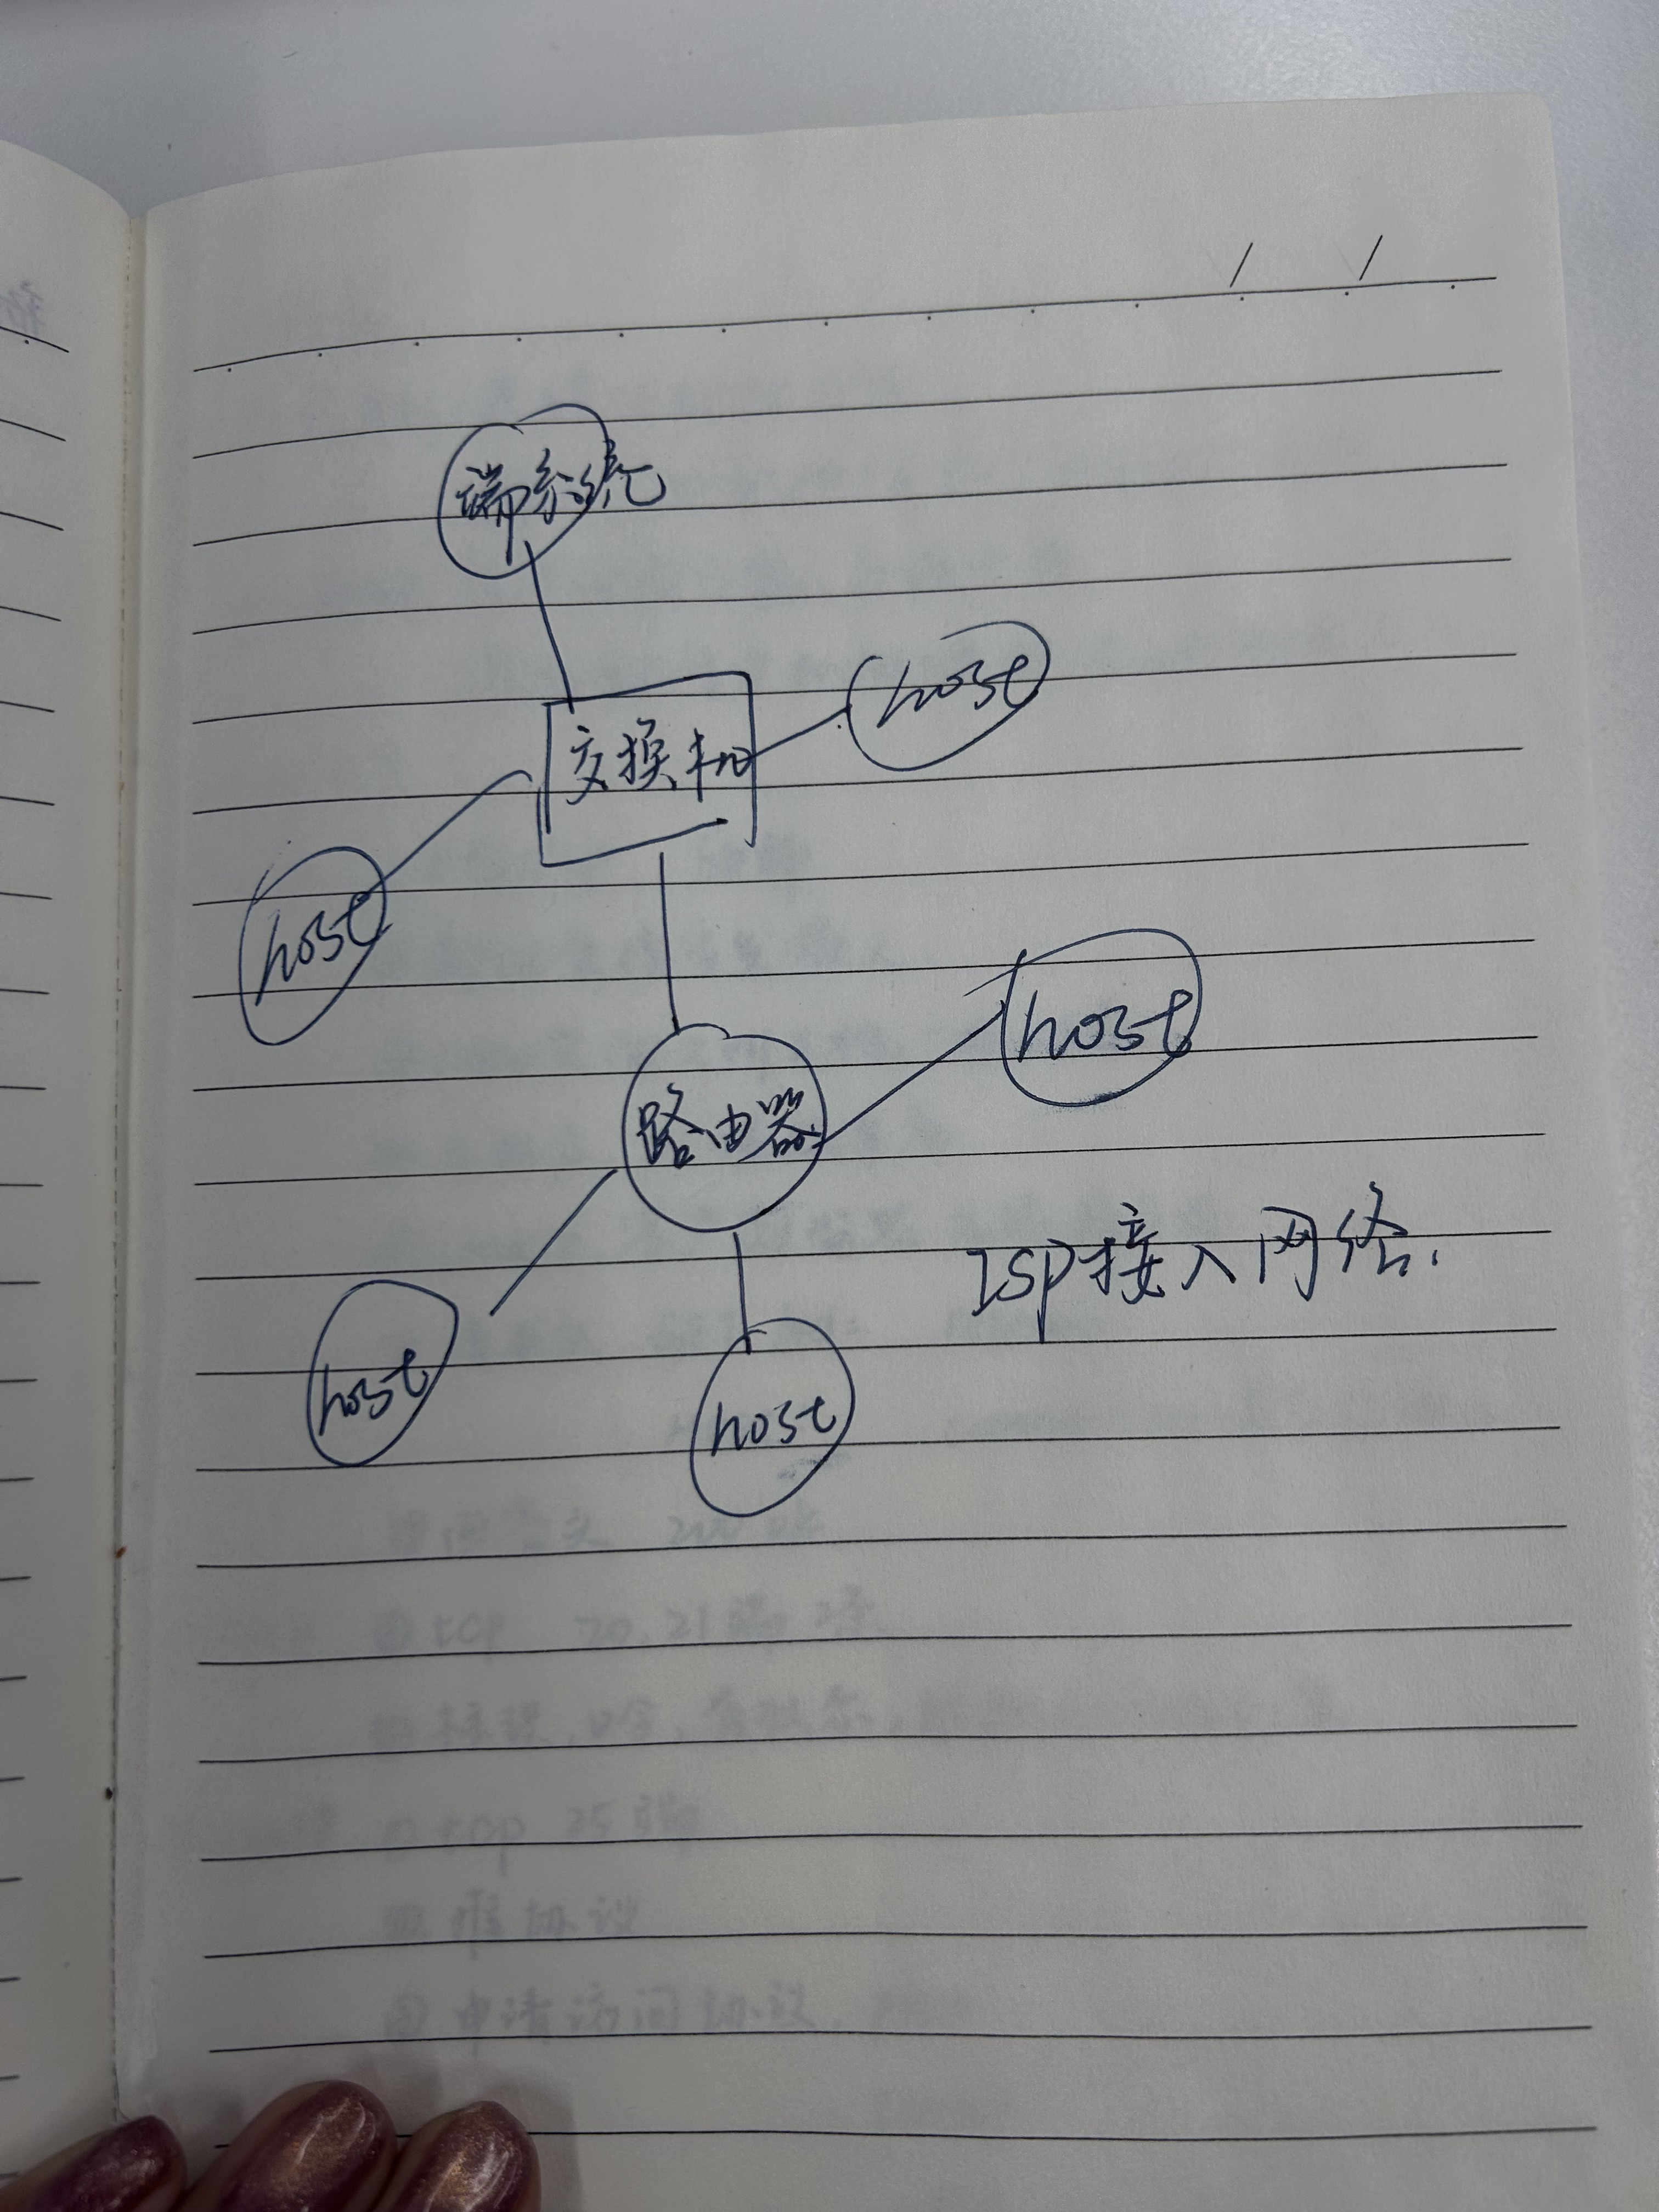 端系统
host
交换机
host
host
路由器
ISP接入网络.
host
host